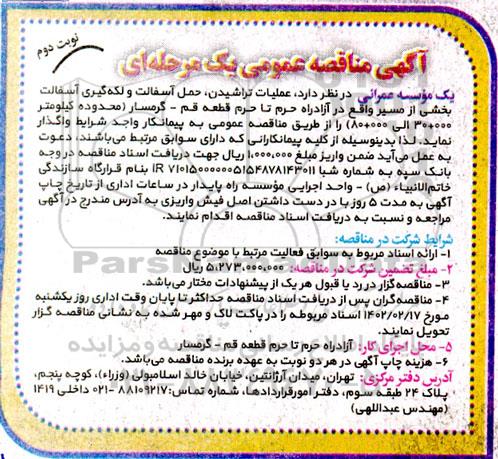 نوبت دوم
آگهی مناقصه عمومی یک مرحله‌ای
یک مؤسسه عمرانی در نظر دارد، عملیات تراشیدن، حمل آسفالت و لکه‌گیری آسفالت
بخشی از مسیر واقع در آزادراه حرم تا حرم قطعه قم - گرمسار (محدوده کیلومتر
۳۰+۰۰۰ الی ۸۰+۰۰۰) را از طریق مناقصه عمومی به پیمانکار واجد شرایط واگذار
نماید. لذا بدینوسیله از کلیه پیمانکارانی که دارای سوابق مرتبط می‌باشند، دعوت
به عمل می‌آید ضمن واریز مبلغ ۱,۰۰۰,۰۰۰ ریال جهت دریافت اسناد مناقصه در وجه
بانک سپه به شماره شبا IR ۷۱۰۱۵۰۰۰۰۰۰۵۱۵۴۸۷۸۱۴۳۰۱۱ بنام قرارگاه سازندگی
خاتم‌الانبیاء (ص) - واحد اجرایی مؤسسه راه پایدار در ساعات اداری از تاریخ چاپ
آگهی به مدت ۵ روز با در دست داشتن اصل فیش واریزی به آدرس مندرج در آگهی
مراجعه و نسبت به دریافت اسناد مناقصه اقدام نمایند.
شرایط شرکت در مناقصه:
۱- ارائه اسناد مربوط به سوابق فعالیت مرتبط با موضوع مناقصه
۲- مبلغ تضمین شرکت در مناقصه: ۵,۲۷۳,۰۰۰,۰۰۰ ریال
۳- مناقصه‌گزار در رد یا قبول هر یک از پیشنهادات مختار می‌باشد.
۴- مناقصه‌گران پس از دریافت اسناد مناقصه حداکثر تا پایان وقت اداری روز یکشنبه
مورخ ۱۴۰۲/۰۲/۱۷ اسناد مربوطه را در پاکت لاک و مهر شده به نشانی مناقصه گزار
تحویل نمایند.
۵- محل اجرای کار: آزادراه حرم تا حرم قطعه قم - گرمسار
۶- هزینه چاپ آگهی در هر دو نوبت به عهده برنده مناقصه می‌باشد.
آدرس دفتر مرکزی: تهران، میدان آرژانتین، خیابان خالد اسلامبولی (وزراء)، کوچه پنجم،
پلاک ۲۴ طبقه سوم، دفتر امورقراردادها، شماره تماس: ۸۸۱۰۹۲۱۷-۰۲۱ داخلی ۱۴۱۹
(مهندس عبداللهی)